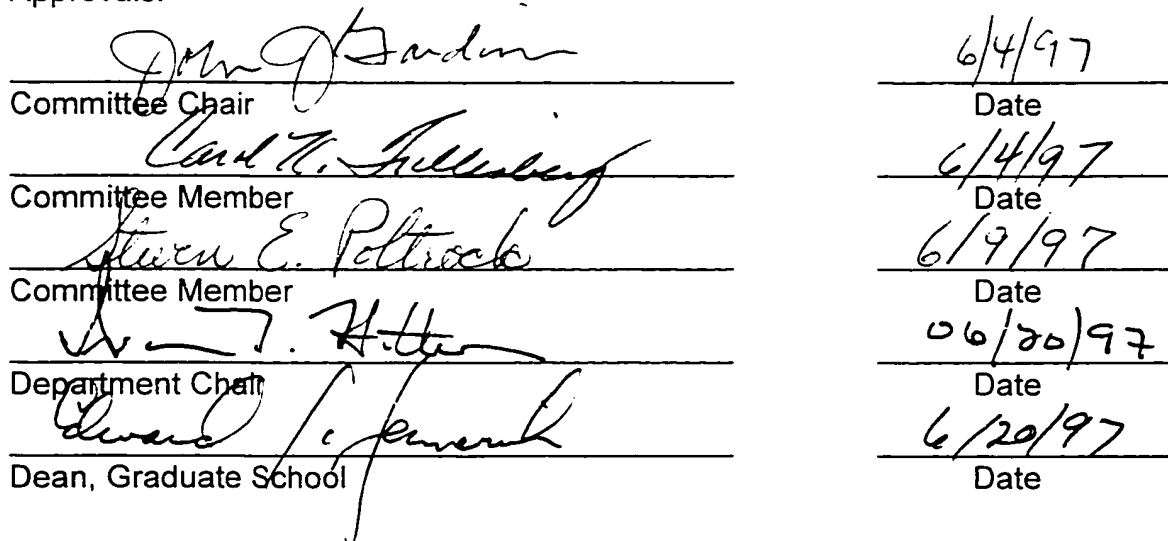 Approvals:
John J Gardiner 6/4/97
Committee Chair Date
Carol N. 6/4/97
Committee Member Date
Steven E. Poltrock 6/9/97
Committee Member Date
T. 06/20/97
Department Chair Date
Edward 6/20/97
Dean, Graduate School Date